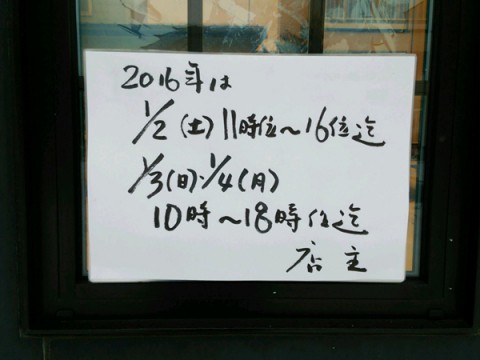 2016年は
1/2(土)11時位〜16位迄
1/3(日)・1/4(月)
10時〜18時位迄
店主